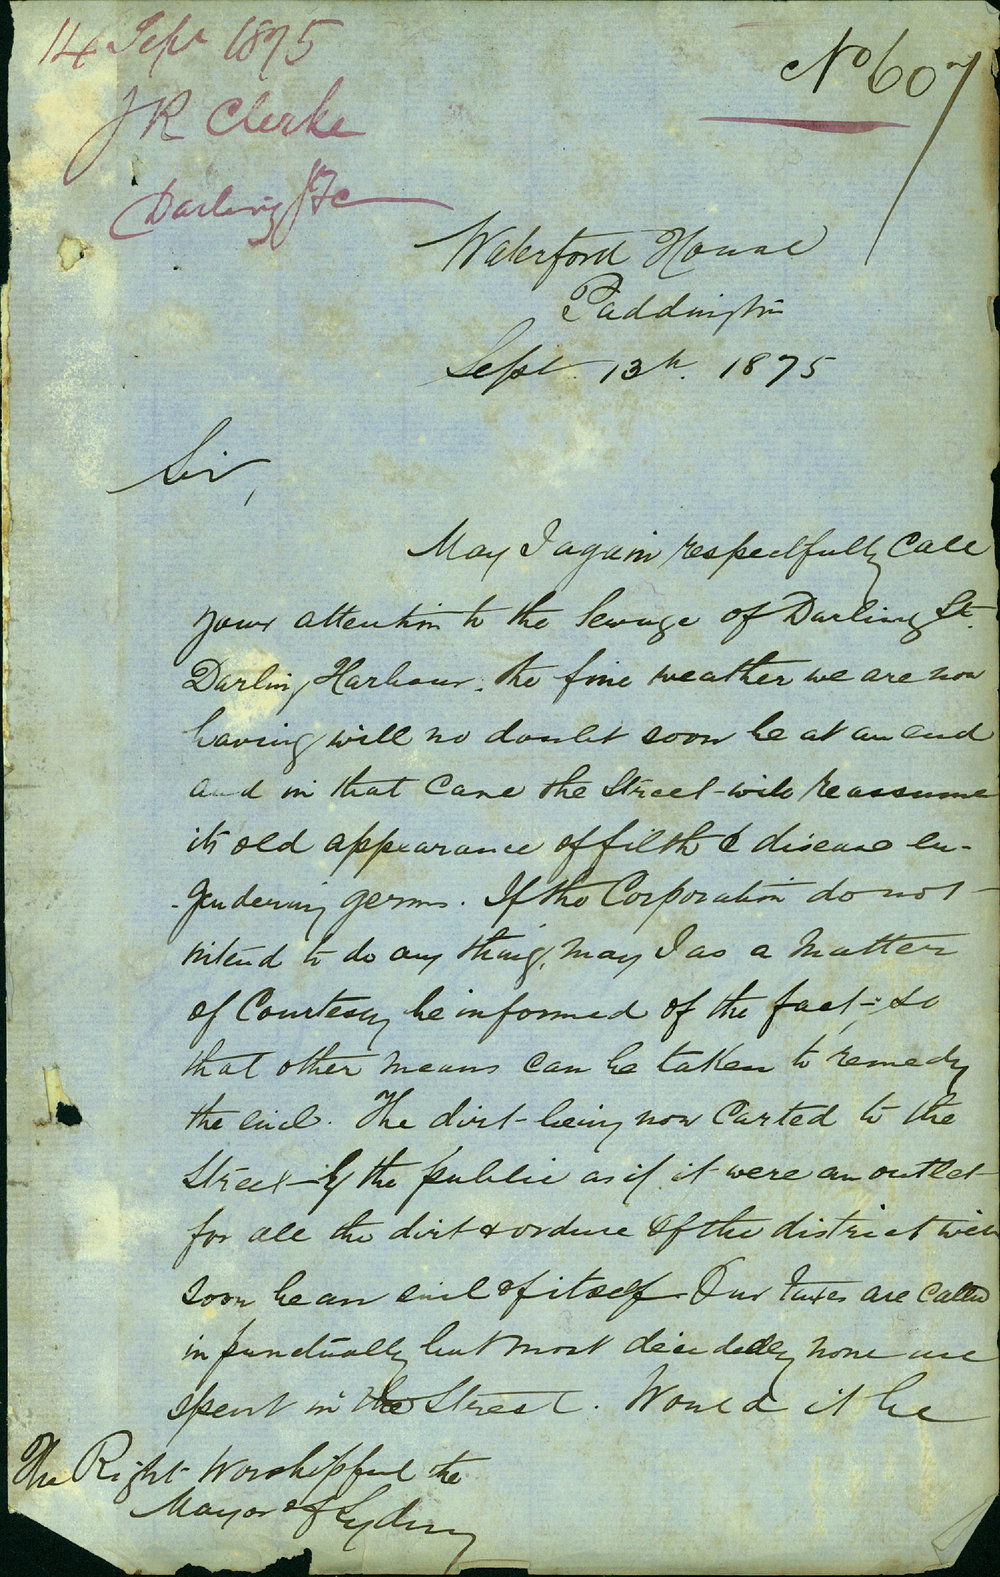 14 Sepr 1875
No 607
J R Clerke
Darling St
Waterford House
Paddington
Sept. 13th. 1875
Sir,
May I again respectfully call
your attention to the Sewage of Darling St.
Darling Harbour. the fine weather we are now
having will no doubt soon be at an end
and in that case the Street will reassume
its old appearance of filth & disease en-
-gendering germs. If the Corporation do not
intend to do any thing, may I as a matter
of Courtesy be informed of the fact; so
that other means can be taken to remedy
the evil. The dirt being now Carted to the
Street by the public as if it were an outlet
for all the dirt & ordure of the district will
soon be an evil of itself. Our taxes are called
in punctually but most decidedly none are
spent in the Street. Would it be
The Right Worshipful the
Mayor of Sydney